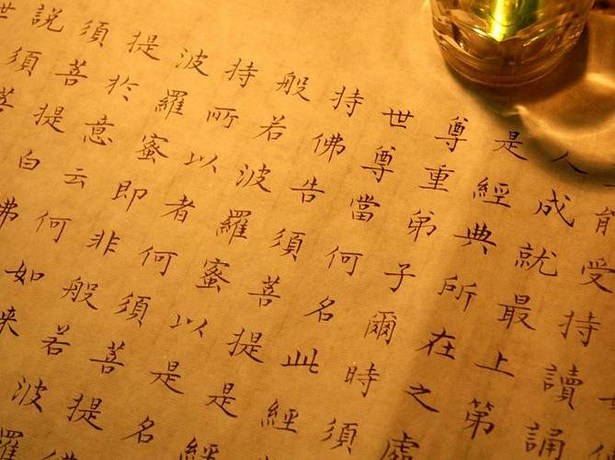 能受持讀誦
人成就最上第
是經典所在之處
尊重弟子爾時須
世尊當何名此經
持佛告須菩提是經
般若波羅蜜以是名
持所以者何須菩提佛
波羅蜜即非般若波羅
提於意云何如来
須菩提白佛
說須菩
世